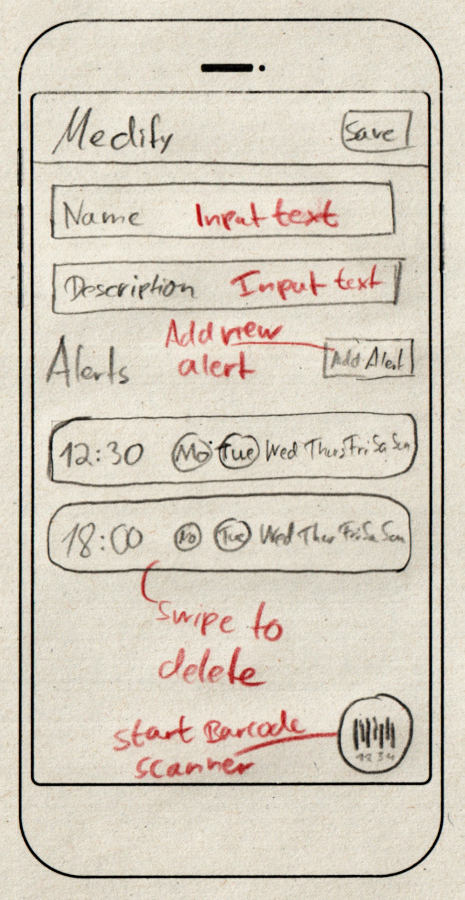 Medify
Save
Name Input text
Description Input text
Add new
alert
Alerts
Add Alert
12:30 Mo Tue Wed Thurs Fri Sa Sun
18:00 Mo Tue Wed Thur Fri Sa Sun
swipe to
delete
start Barcode
scanner
1234